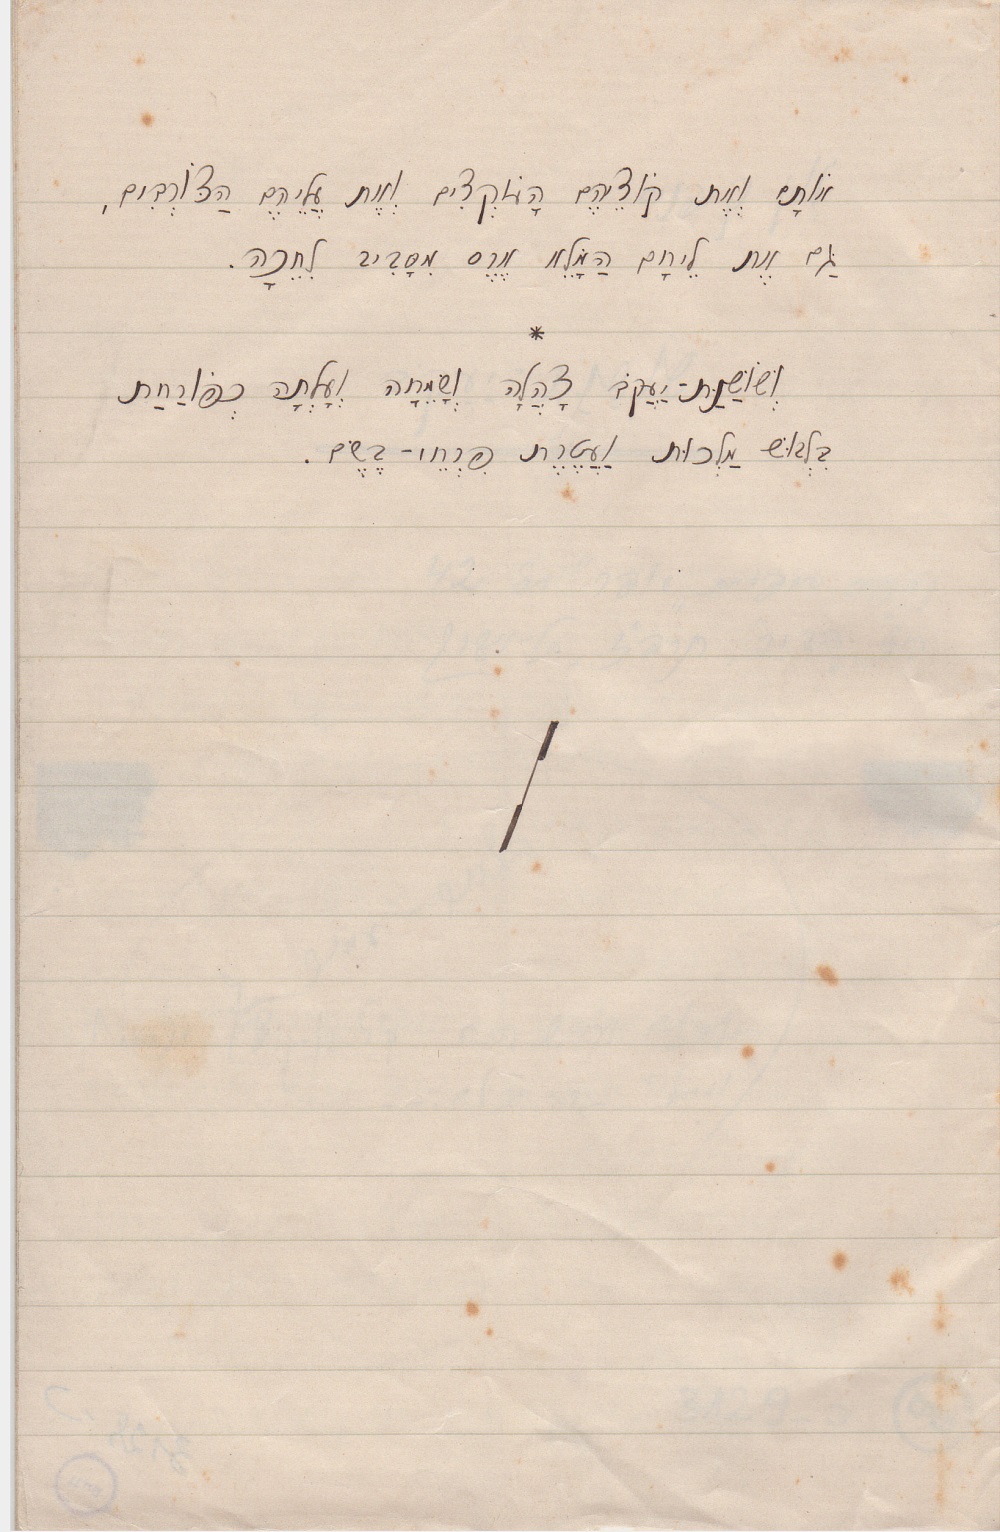 אוֹתָם וְאֶת קוֹצֵיהֶם הָעוֹקְצִים וְאֶת עֲלֵיהֶם הַצּוֹרְבִים,
גַּם אֶת לֵיחָם הַמָּלֵא אֶרֶס מִסָּבִיב לְחִכָּהּ.
*
וְשׁוֹשַׁנַּת-יַעֲקֹב צָהֲלָה וְשָׂמֵחָה וְעָלְתָה כְּפוֹרַחַת
בִּלְבוּשׁ מַלְכוּת וַעֲטֶרֶת פִּרְחֵי-בֹשֶׂם.